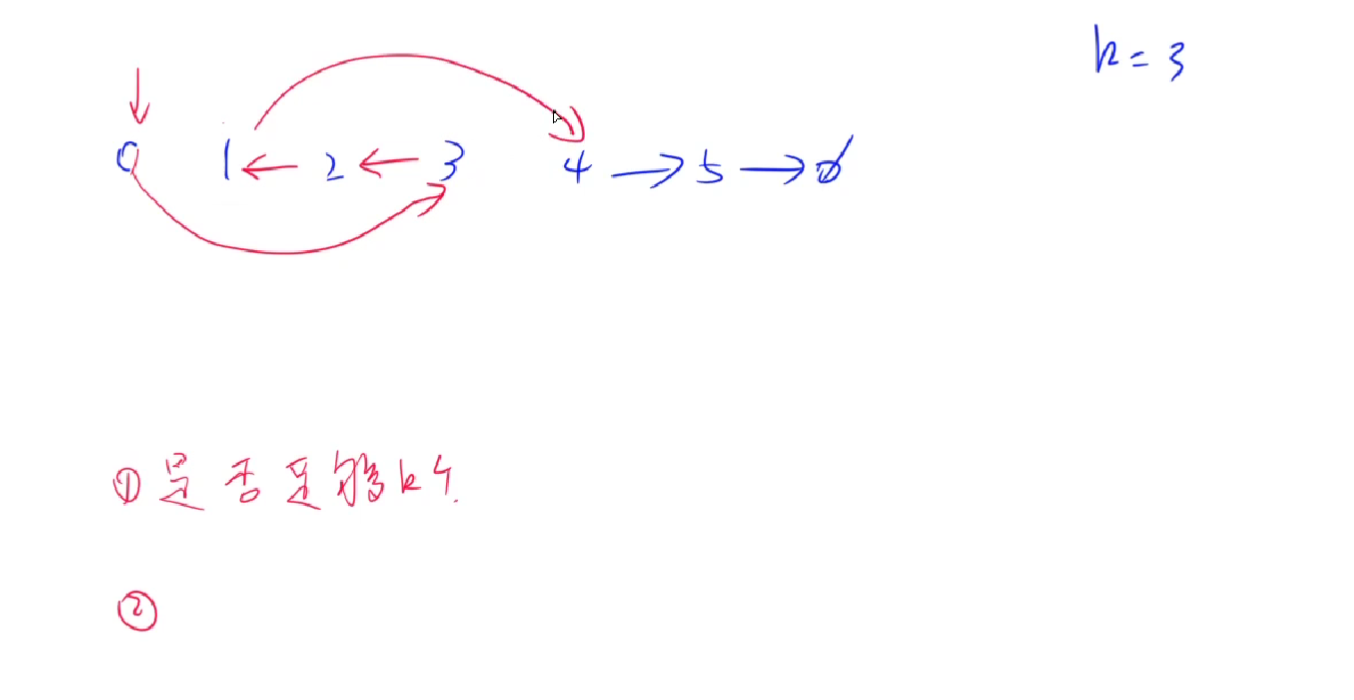 k = 3
0 1 ← 2 ← 3 4 → 5 → ∅
① 是否足够k个
②